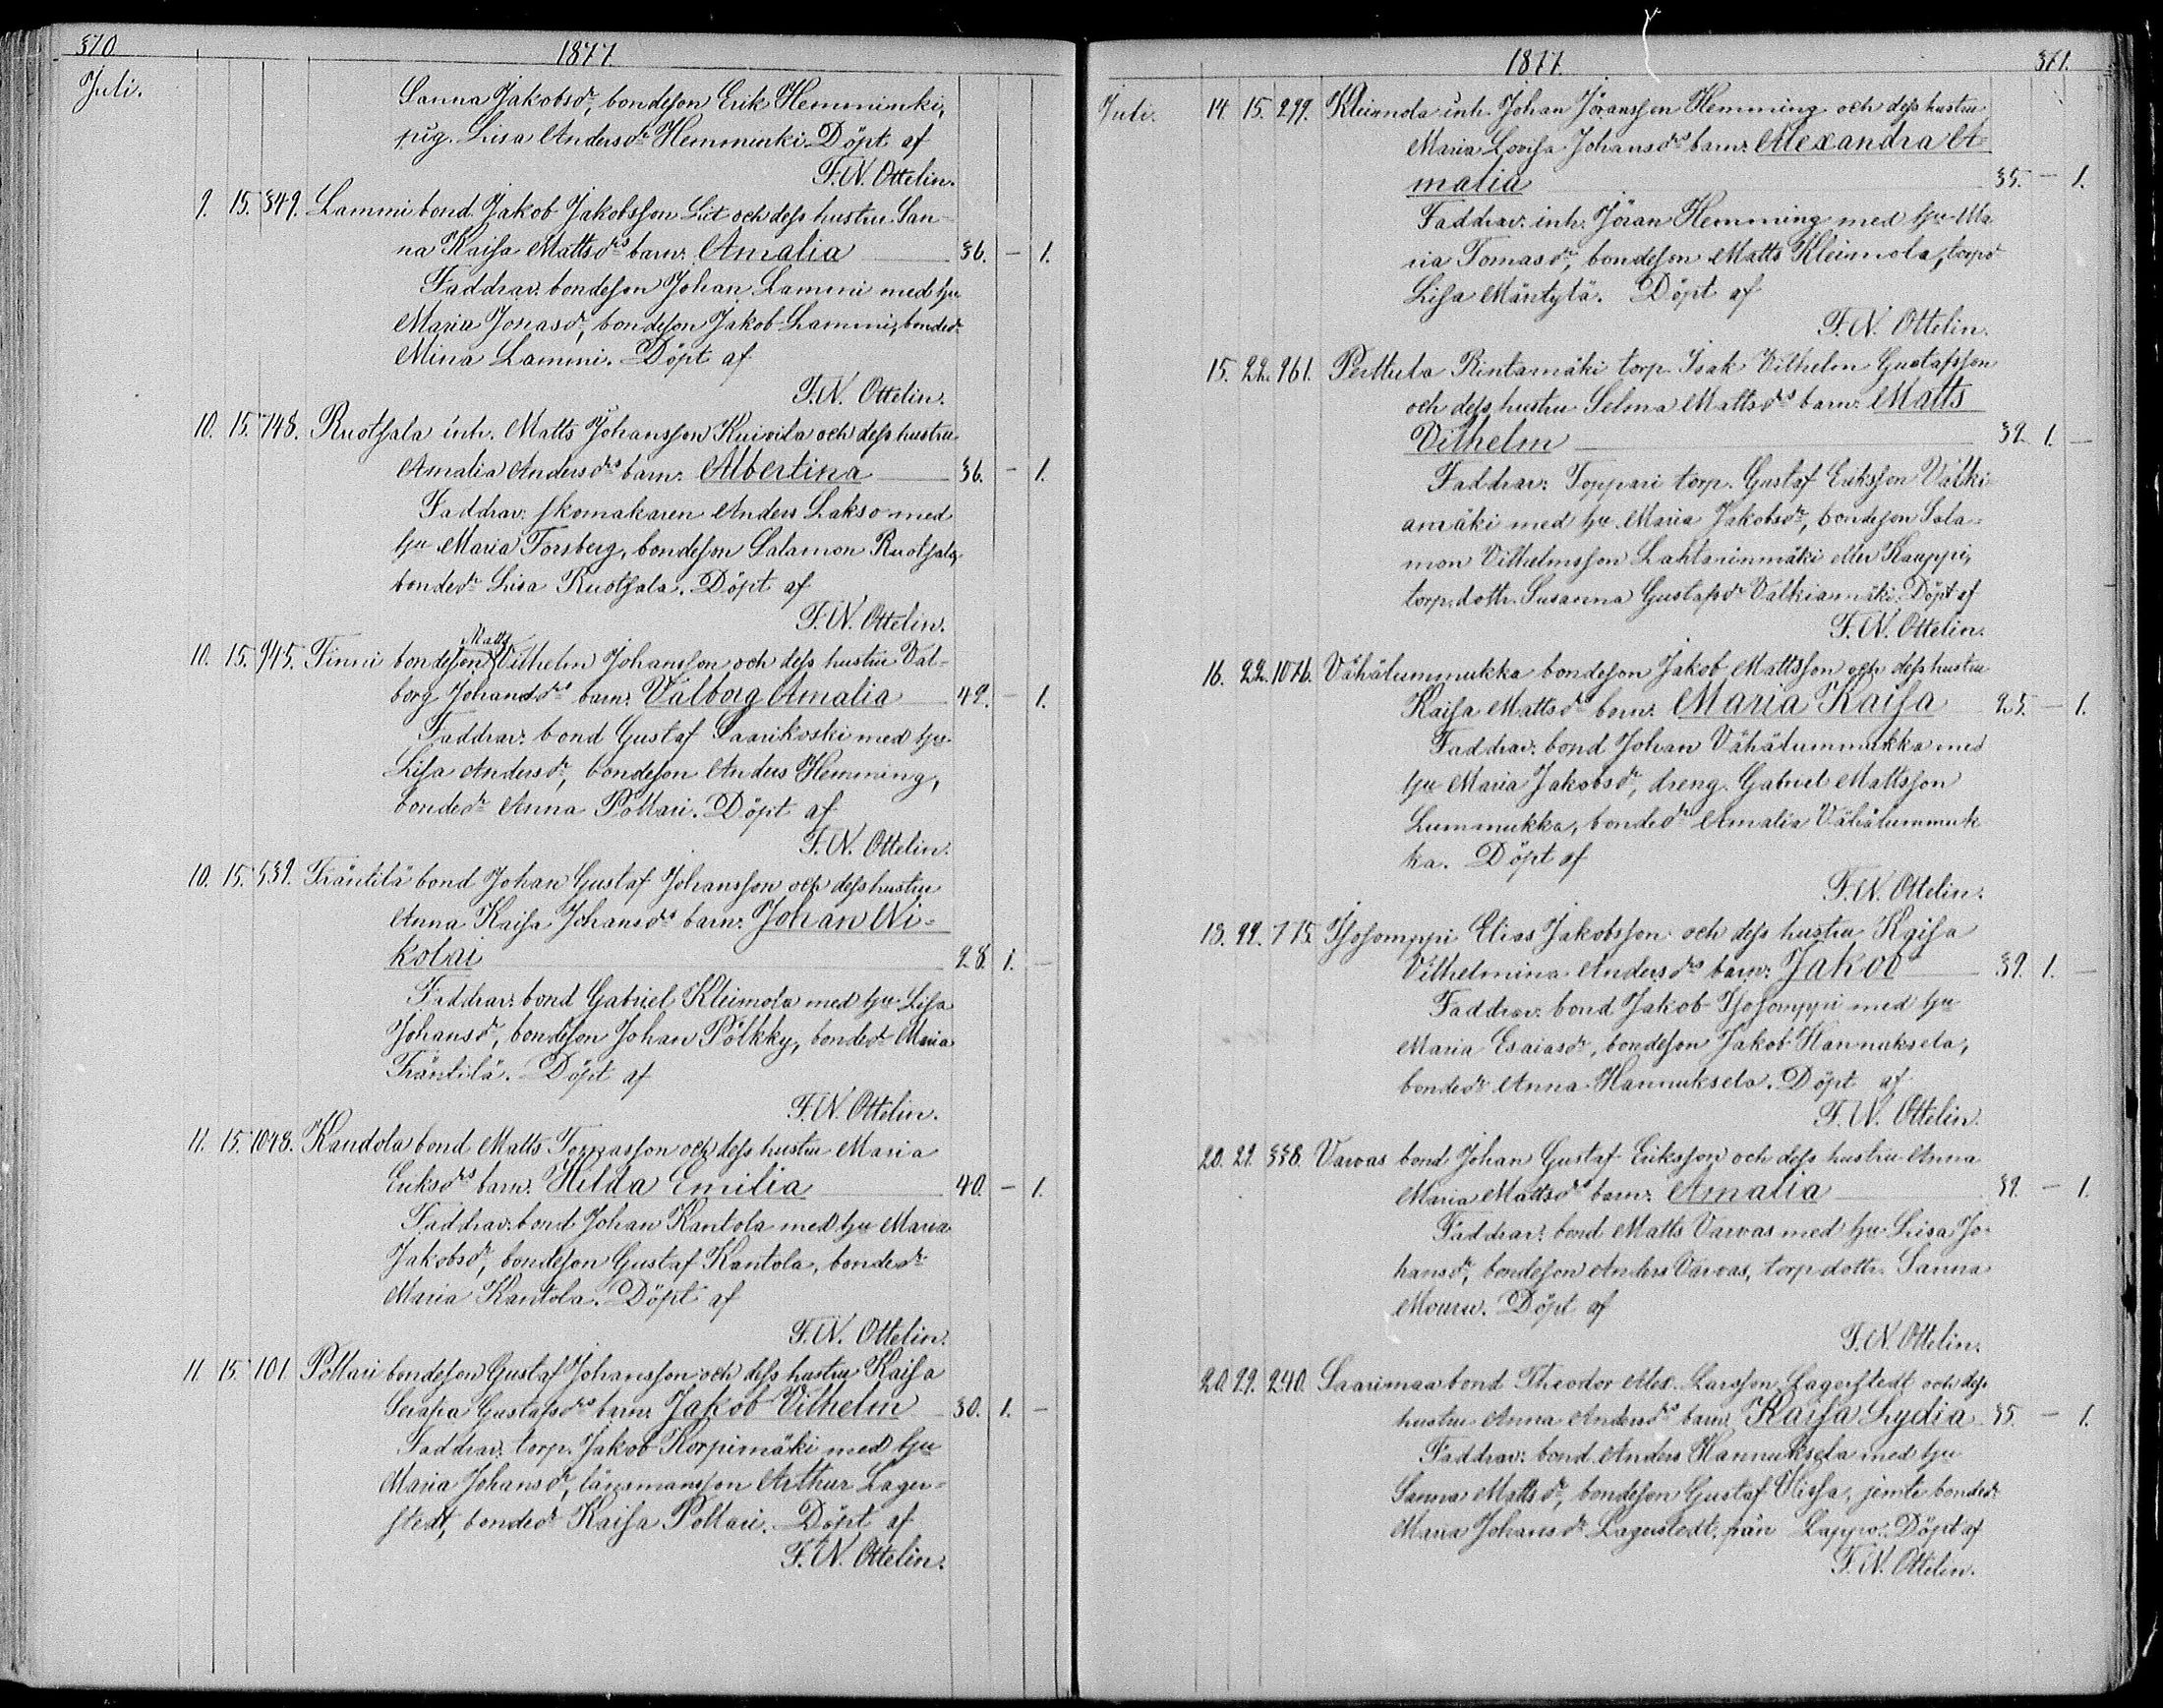 370
1877.
Juli.
Sanna Jakobsdr, bondeson Erik Hemminki,
pig. Lisa Andersdr Hemminki. Döpt af
F.W. Ottelin.
9. 15. 349. Lammi bond. Jakob Jakobsson Lit och dess hustru San-
na Kaisa Mattsdrs barn: Amalia 36. – 1.
Faddrar: bondeson Johan Lammi med hu
Maria Jonasdr, bondeson Jakob Lammi, bondedr
Mina Lammi. Döpt af
F.W. Ottelin.
10. 15. 748. Ruotsala inh. Matts Johansson Knivila och dess hustru
Amalia Andersdrs barn: Albertina 36. – 1.
Faddrar: skomakaren Anders Lakso med
hu Maria Forsberg, bondeson Salamon Ruotsala,
bondedr Lisa Ruotsala. Döpt af
F.W. Ottelin.
Matts
10. 15. 945. Finni bondeson Vilhelm Johansson och dess hustru Val-
borg Johansdrs barn: Valborg Amalia 42. – 1.
Faddrar: bond Gustaf Saarikoski med hu
Lisa Andersdr, bondeson Anders Hemming,
bondedr Anna Pottari. Döpt af
F.W. Ottelin.
10. 15. 539. Fräntilä bond Johan Gustaf Johansson och dess hustru
Anna Kaisa Johansdrs barn: Johan Ni-
kolai 28. 1. –
Faddrar: bond Gabriel Kleimola med hu Lisa
Johansdr, bondeson Johan Pölkky, bondedr Maria
Fräntilä. Döpt af
F.W. Ottelin.
11. 15. 1048. Kandola bond Matts Tomasson och dess hustru Maria
Eriksdrs barn: Hilda Emilia 40. – 1.
Faddrar: bond Johan Kantola med hu Maria
Jakobsdr, bondeson Gustaf Kantola, bondedr
Maria Kantola. Döpt af
F.W. Ottelin.
11. 15. 101. Pottari bondeson Gustaf Johansson och dess hustru Kaisa
Serafia Gustafsdrs barn: Jakob Vilhelm 30. 1. –
Faddrar: torp. Jakob Korpimäki med hu
Maria Johansdr, länsmansson Arthur Lager-
stedt, bondedr Kaisa Pottari. Döpt af
F.W. Ottelin.
1877.
371.
Juli. 14. 15. 299. Kleimola inh. Johan Jöransson Hemming och dess hustru
Maria Lovisa Johansdrs barn: Alexandra A-
malia 35. – 1.
Faddrar: inh. Jöran Hemming med hu Ma
ria Tomasdr, bondeson Matts Kleimola, torpdr
Lisa Mäntylä. Döpt af
F.W. Ottelin.
15. 22. 961. Perttula Rintamäki torp. Isak Vilhelm Gustafsson
och dess hustru Selma Mattsdrs barn: Matts
Vilhelm 39. 1. –
Faddrar: Toppari torp. Gustaf Eriksson Valki-
amäki med hu Maria Jakobsdr, bondeson Sala-
mon Vilhelmsson Lahtarinmäki eller Kauppi,
torp. dottr. Susanna Gustafsdr Valkiamäki. Döpt af
F.W. Ottelin.
16. 22. 1076. Vähälummukka bondeson Jakob Mattsson och dess hustru
Kaisa Mattsdrs barn: Maria Kaisa 25. – 1.
Faddrar: bond Johan Vähälummukka med
hu Maria Jakobsdr, dreng. Gabriel Mattsson
Lummukka, bondedr Amalia Vähälummuk
ka. Döpt af
F.W. Ottelin.
18. 22. 775. Isosomppi Elias Jakobsson och dess hustru Kaisa
Vilhelmina Andersdrs barn: Jakob 39. 1. –
Faddrar: bond Jakob Isosomppi med hu
Maria Esaiasdr, bondeson Jakob Hannuksela,
bondedr Anna Hannuksela. Döpt af
F.W. Ottelin.
20. 22. 338. Varvas bond Johan Gustaf Eriksson och dess hustru Anna
Maria Mattsdrs barn: Amalia 39. – 1.
Faddrar: bond Matts Varvas med hu Lisa Jo-
hansdr, bondeson Anders Varvas, torp dottr. Sanna
Mouru. Döpt af
F.W. Ottelin.
20. 22. 240. Saarimaa bond Theodor Alex. Larsson Lagerstedt och dess
hustru Anna Andersdrs barn: Kaisa Lydia 35. – 1.
Faddrar: bond Anders Hannuksela med hu
Sanna Mattsdr, bondeson Gustaf Missa, jemte bondedr
Maria Johansdr Lagerstedt från Lappo. Döpt af
F.W. Ottelin.